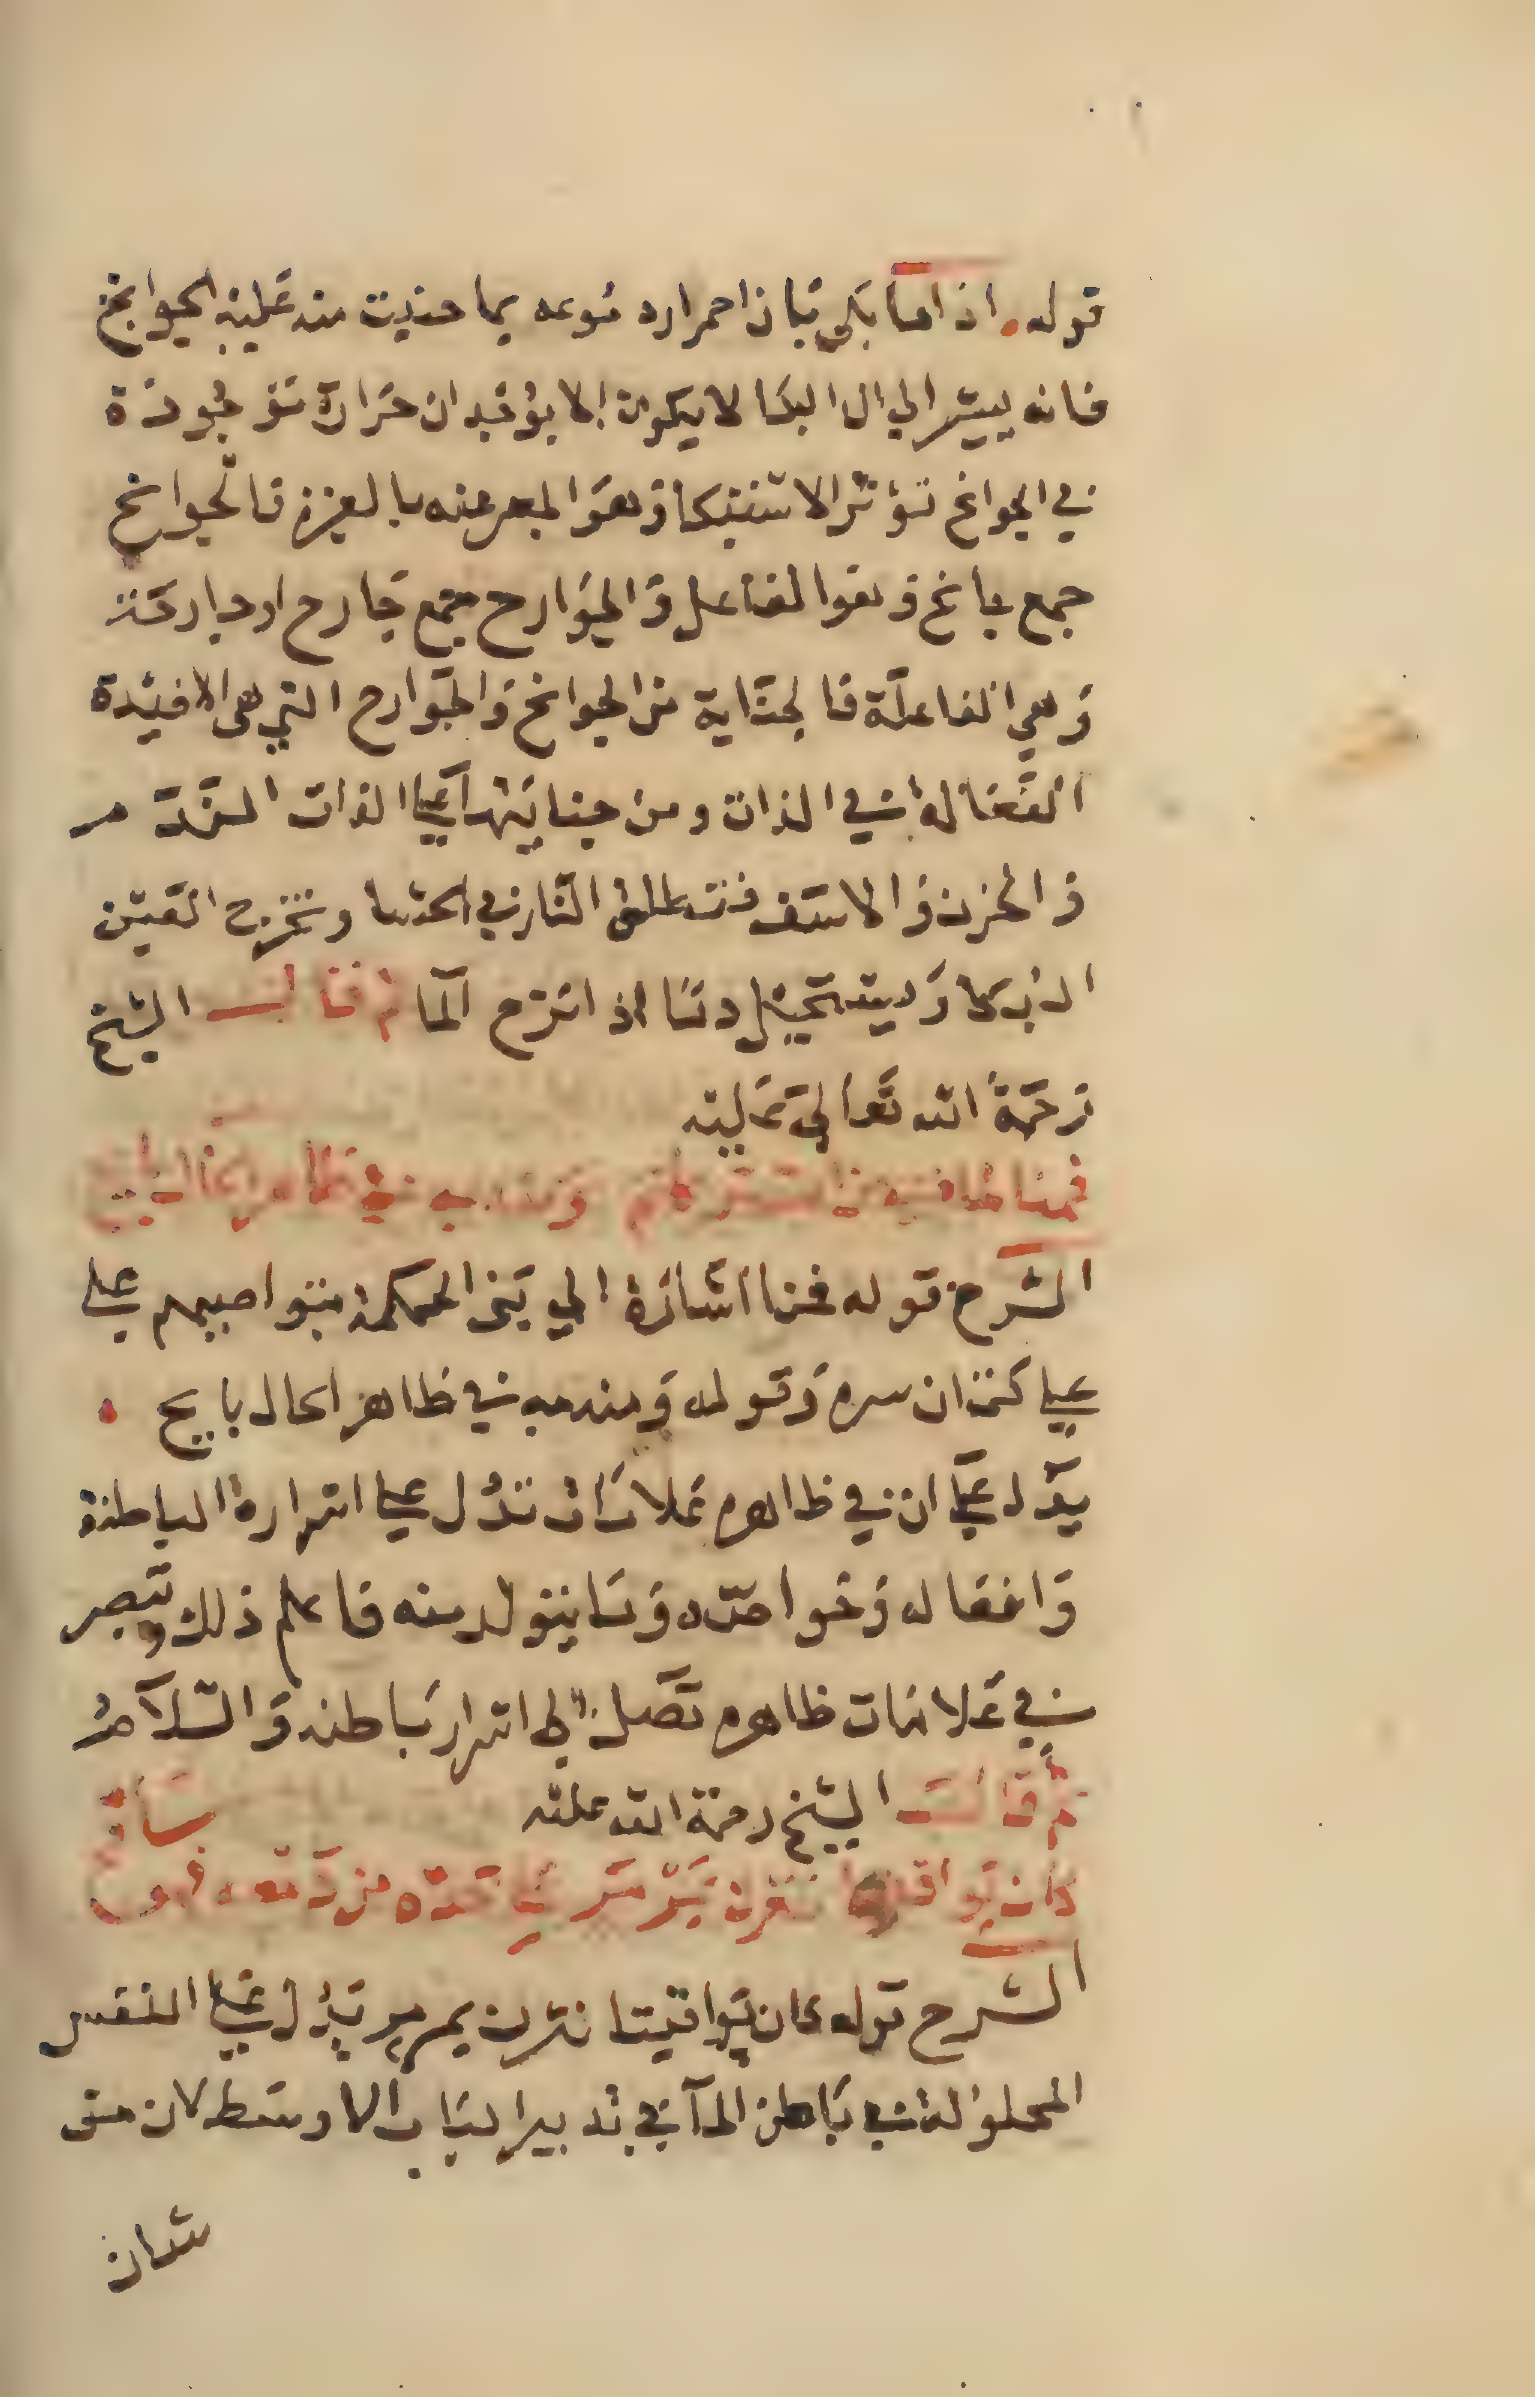 قوله اذا ما بكى بان احمراره دموعه بما جنيت منه عليه الجوانح
فانه يشير الي ان البكا لا يكون الا بوجدان حرارة موجودة
في الجوانح تؤثر الاستبكا وهو المعبر عنه بالغرز فالجوانح
جمع جانح وهو المفاعل والجوارح جمع جارح او جارحة
وهي الفاعلة فالجناية من الجوانح والجوارح التي هي الافيدة
الفعالة في الذات ومن جنايتها علي الذات الندم
والحزن والاسف فتلظي النار في الحشا وتخرج العين
البكا ويستحيل دما اذا امتزج الما ثم قال الشيخ
رحمة الله تعالي عليه
ومنه في ظاهر الحال بايح
الشرح قوله فحزنا اشارة الي بني الحكمة بتواصيهم علي
علي كتمان سره وقوله ومنه به في ظاهر الحال بايح
يدل علي ان في ظاهره علامات تدل علي اسراره الباطنة
وافعاله وخواصه وما يتولد منه فاعلم ذلك وتبصر
في علامات ظاهره تصل الي اسرار باطنه والسلام
ثم قال الشيخ رحمة الله عليه
كان يواقيتا نثرن بمرمر علي خده من دمعه
الشرح قوله كان يواقيتا نثرن بمرمر يدل علي النفس
المحلولة في باطن المآ في تدبير الباب الاوسط لان من
شان